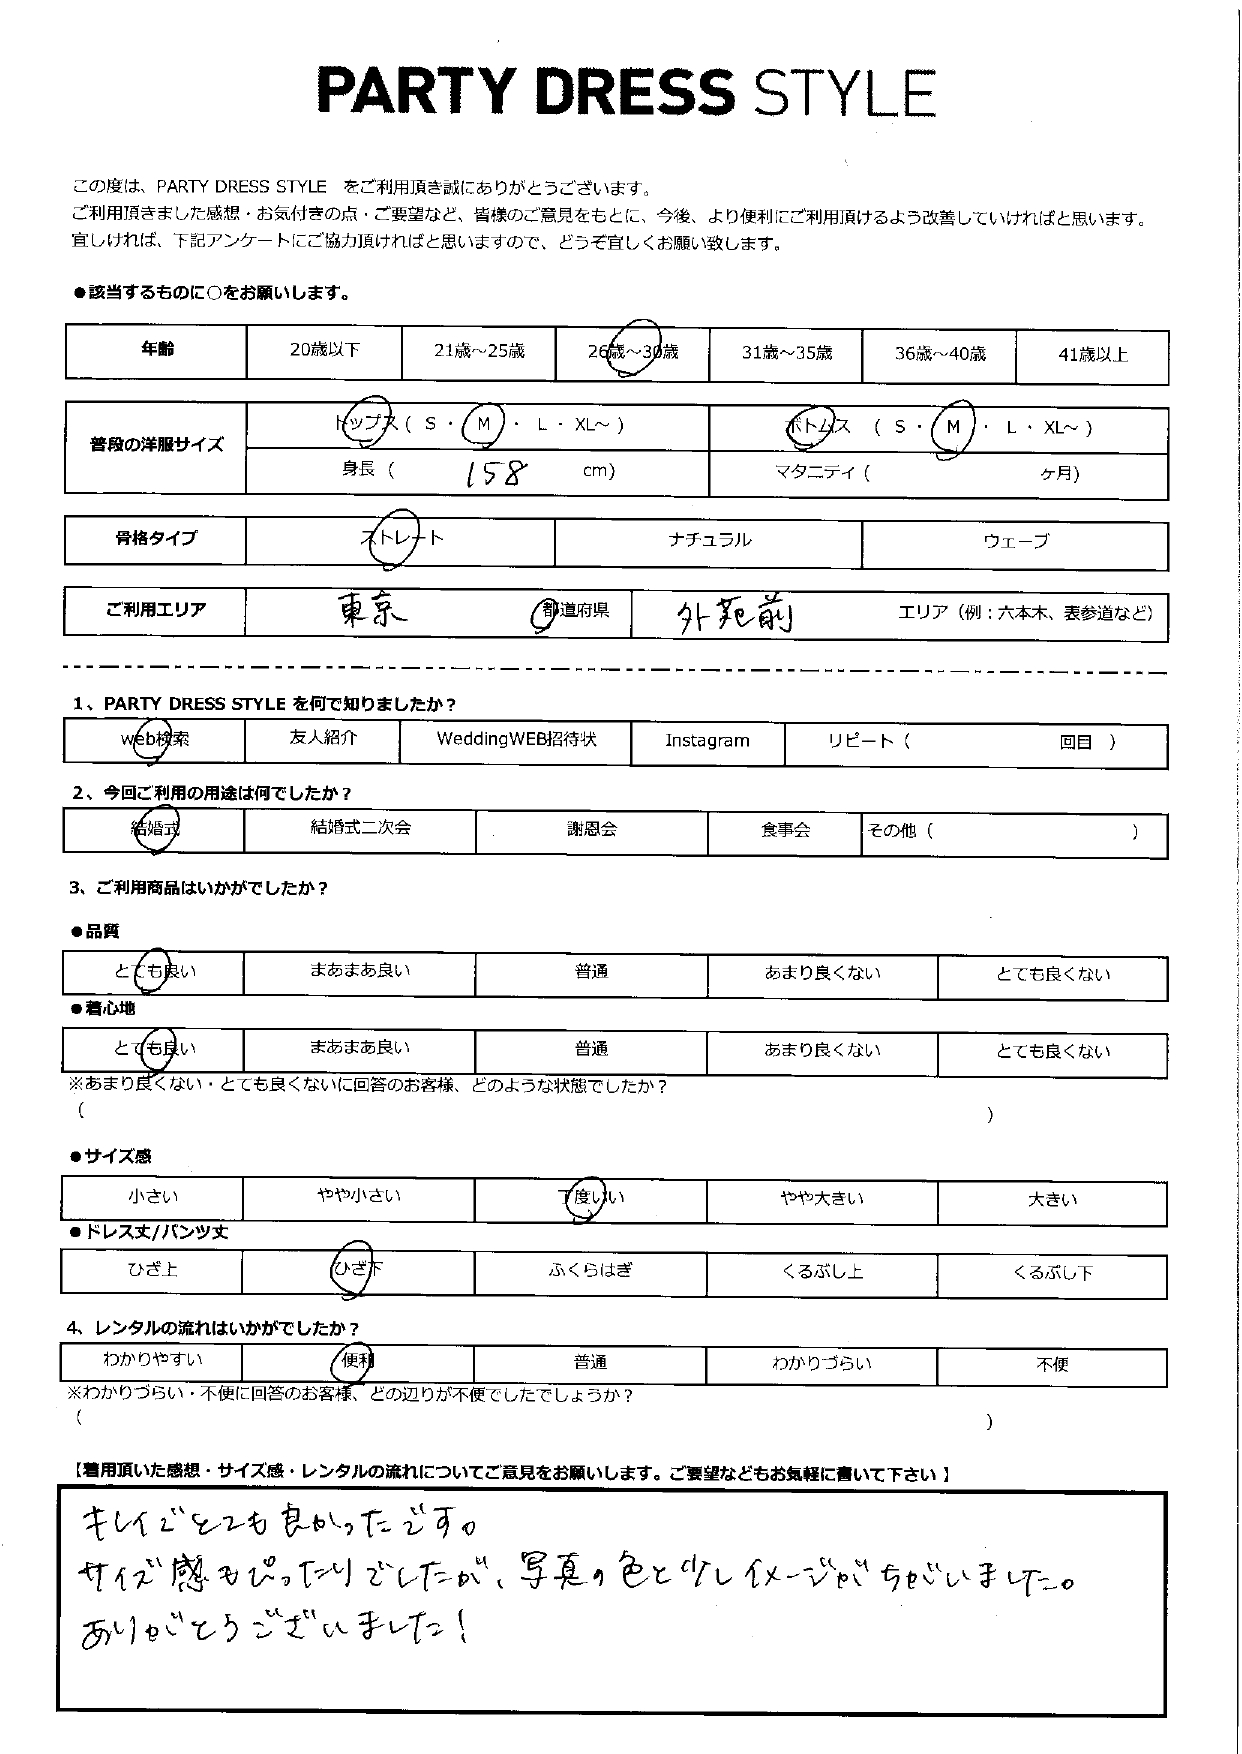 PARTY DRESS STYLE
この度は、PARTY DRESS STYLE をご利用頂き誠にありがとうございます。
ご利用頂きました感想・お気付きの点・ご要望など、皆様のご意見をもとに、今後、より便利にご利用頂けるよう改善していければと思います。
宜しければ、下記アンケートにご協力頂ければと思いますので、どうぞ宜しくお願い致します。
●該当するものに○をお願いします。
年齢 20歳以下 21歳～25歳 26歳～30歳 31歳～35歳 36歳～40歳 41歳以上
普段の洋服サイズ トップス ( S ・ M ・ L ・ XL～ ) ボトムス ( S ・ M ・ L ・ XL～ )
身長 ( 158 cm) マタニティ ( ヶ月)
骨格タイプ ストレート ナチュラル ウェーブ
ご利用エリア 東京 都道府県 外苑前 エリア（例：六本木、表参道など）
1、PARTY DRESS STYLE を何で知りましたか？
web検索 友人紹介 WeddingWEB招待状 Instagram リピート ( 回目 )
2、今回ご利用の用途は何でしたか？
結婚式 結婚式二次会 謝恩会 食事会 その他 ( )
3、ご利用商品はいかがでしたか？
●品質
とても良い まあまあ良い 普通 あまり良くない とても良くない
●着心地
とても良い まあまあ良い 普通 あまり良くない とても良くない
※あまり良くない・とても良くないに回答のお客様、どのような状態でしたか？
( )
●サイズ感
小さい やや小さい 丁度いい やや大きい 大きい
●ドレス丈/パンツ丈
ひざ上 ひざ下 ふくらはぎ くるぶし上 くるぶし下
4、レンタルの流れはいかがでしたか？
わかりやすい 便利 普通 わかりづらい 不便
※わかりづらい・不便に回答のお客様、どの辺りが不便でしたでしょうか？
( )
【着用頂いた感想・サイズ感・レンタルの流れについてご意見をお願いします。ご要望などもお気軽に書いて下さい】
キレイでとても良かったです。
サイズ感もぴったりでしたが、写真の色と少しイメージがちがいました。
ありがとうございました！